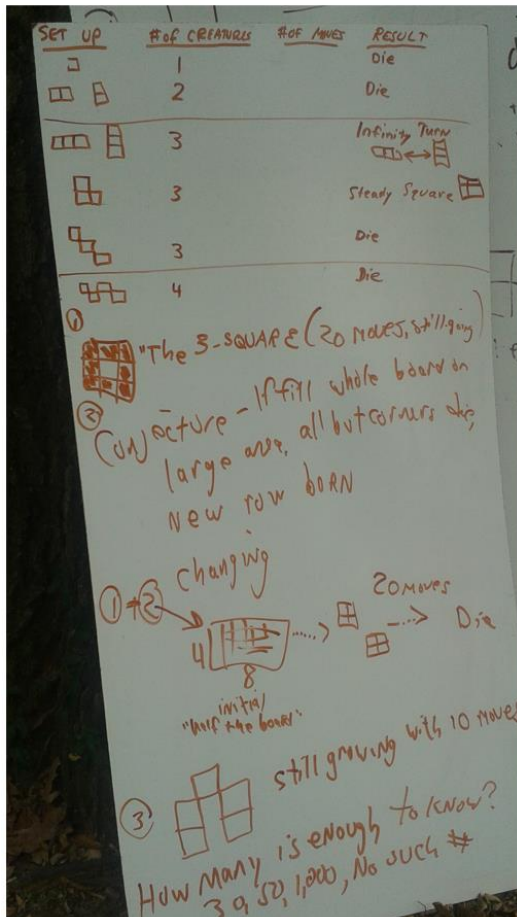 SET UP # of CREATURES # OF MOVES RESULT
1 Die
2 Die
3 Infinity Turn
3 Steady Square
3 Die
4 Die
①
"The 3-SQUARE (20 MOVES, still going)
②
Conjecture - If fill whole board on
large area, all but corners die,
New row born
changing
① + ② 20 MOVES
4 Die
8
initial
"half the board"
③ still growing with 10 moves
How Many is enough to know?
30, 50, 1,000, No such #